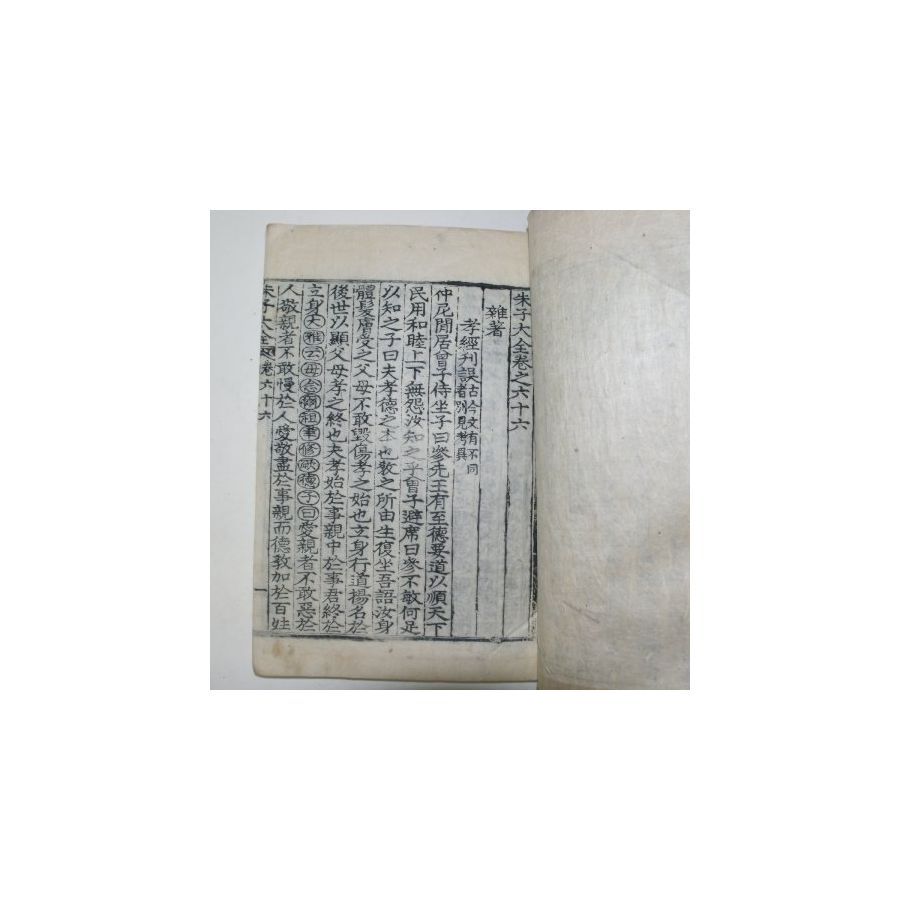 朱子大全卷之六十六
雜著
孝經刊誤古今文有不同者別見考異
仲尼閒居曾子侍坐子曰參先王有至德要道以順天下
民用和睦上下無怨汝知之乎曾子避席曰參不敏何足
以知之子曰夫孝德之本也敎之所由生復坐吾語汝身
體髮膚受之父母不敢毀傷孝之始也立身行道揚名於
後世以顯父母孝之終也夫孝始於事親中於事君終於
立身大雅云毋念爾祖聿修厥德子曰愛親者不敢惡於
人敬親者不敢慢於人愛敬盡於事親而德敎加於百姓
朱子大全 卷六十六 一